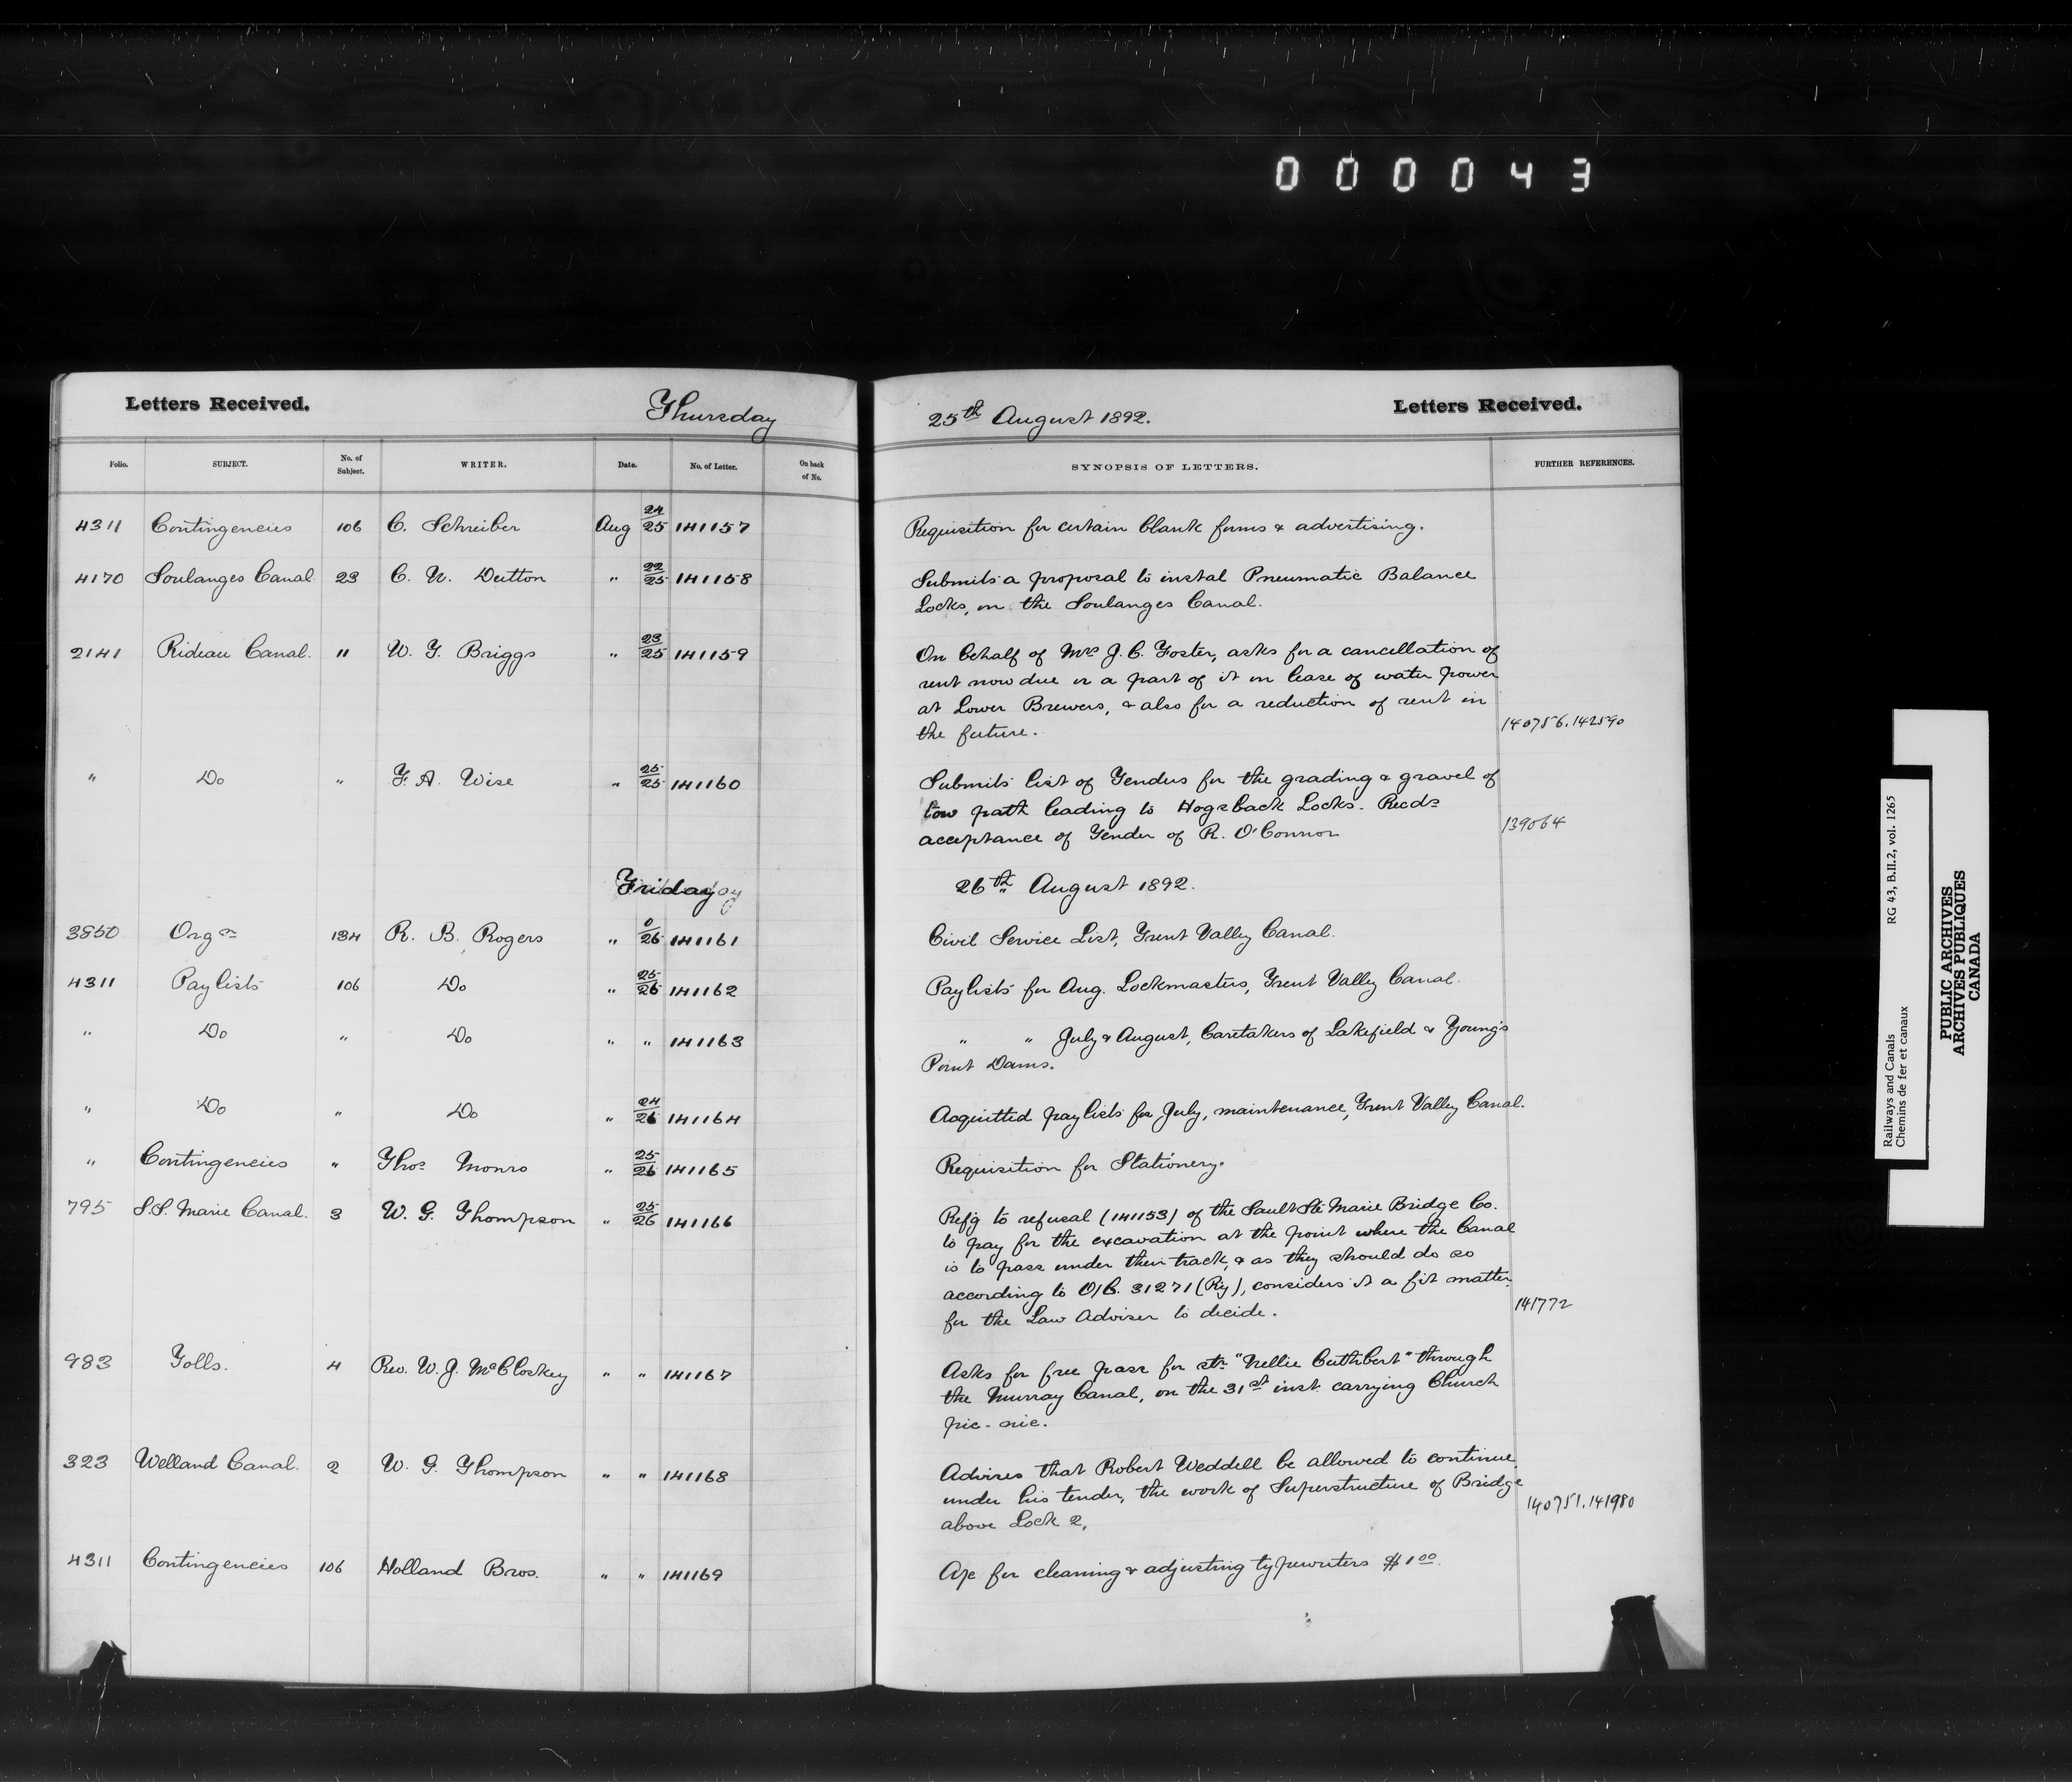 000043
Letters Received.
Thursday
25th August 1892.
Letters Received.
Folio. SUBJECT. No. of Subject. WRITER. Date. No. of Letter. On back of No. SYNOPSIS OF LETTERS. FURTHER REFERENCES.
4311 Contingencies 106 C. Schreiber Aug 24/25 141157 Requisition for certain blank forms & advertising.
4170 Soulanges Canal 23 C. N. Dutton " 22/25 141158 Submits a proposal to instal Pneumatic Balance
Locks, on the Soulanges Canal.
2141 Rideau Canal. 11 W. T. Briggs " 23/25 141159 On behalf of Mrs J. C. Foster, asks for a cancellation of
rent now due or a part of it on lease of water power
at Lower Brewers, & also for a reduction of rent in
the future. 140756.142590
" Do " F. A. Wise " 25/25 141160 Submits list of Tenders for the grading & gravel of
tow path leading to Hogsback Locks. Recds
acceptance of Tender of R. O'Connor 139064
Friday 26th August 1892.
3850 Orgn 134 R. B. Rogers " 0/26 141161 Civil Service List, Trent Valley Canal.
4311 Paylists 106 Do " 25/26 141162 Paylists for Aug. Lockmasters, Trent Valley Canal.
" Do " Do " " 141163 " " July & August, Caretakers of Lakefield & Young's
Point Dams.
" Do " Do " 24/26 141164 Acquitted paylists for July, maintenance, Trent Valley Canal.
" Contingencies " Thos Monro " 25/26 141165 Requisition for Stationery.
795 S.S. Marie Canal. 3 W. G. Thompson " 25/26 141166 Refg to refusal (141153) of the Sault Ste Marie Bridge Co.
to pay for the excavation at the point where the Canal
is to pass under their track, & as they should do so
according to O/C. 31271 (Ry), considers it a fit matter
for the Law Adviser to decide. 141772
983 Tolls. 4 Rev. W. J. McCloskey " " 141167 Asks for free pass for str "Nellie Cuthbert" through
the Murray Canal, on the 31st inst. carrying Church
pic-nic.
323 Welland Canal. 2 W. G. Thompson " " 141168 Advises that Robert Weddell be allowed to continue
under his tender, the work of Superstructure of Bridge
above Lock 2. 140751.141980
4311 Contingencies 106 Holland Bros. " " 141169 A/c for cleaning & adjusting typewriters $1 00.
Railways and Canals RG 43, B.II.2, vol. 1265
Chemins de fer et canaux
PUBLIC ARCHIVES
ARCHIVES PUBLIQUES
CANADA